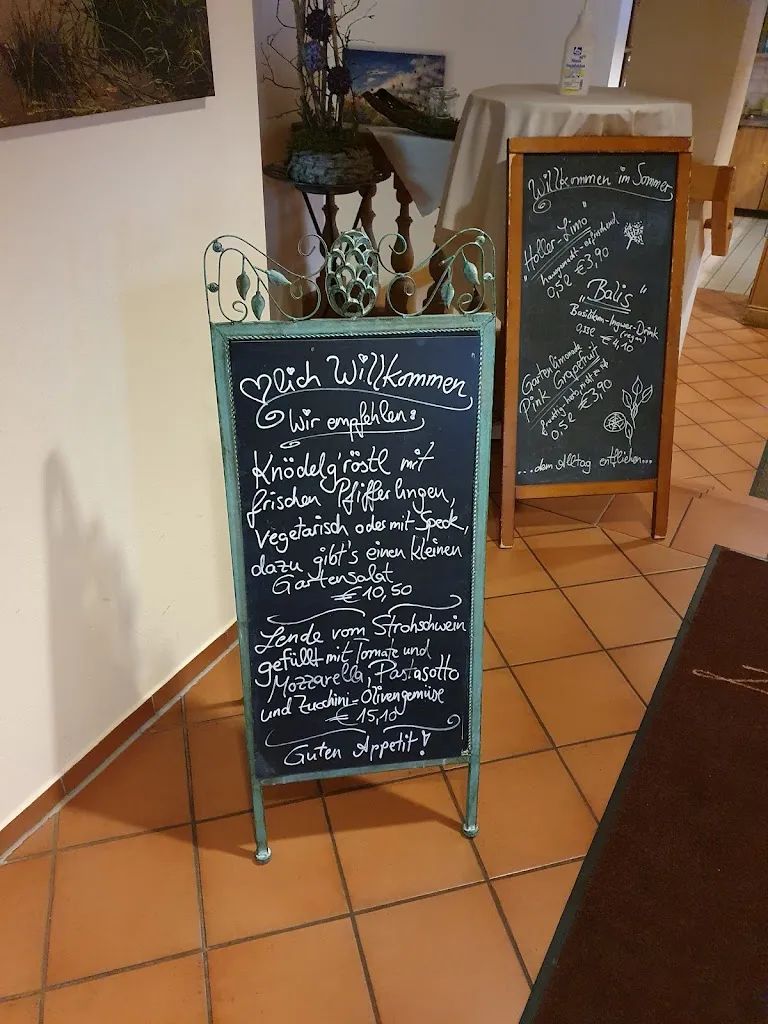 ♡lich Willkommen
Wir empfehlen:
Knödelg'röstl mit
frischen Pfifferlingen,
vegetarisch oder mit Speck,
dazu gibt's einen kleinen
Gartensalat
€ 10,50
Lende vom Strohschwein
gefüllt mit Tomate und
Mozzarella, Pastasotto
und Zucchini-Olivengemüse
€ 15,10
Guten Appetit!
Willkommen im Sommer
"Holler-Limo"
hausgemacht - erfrischend
0,5l € 3,90
"Balis"
Basilikum-Ingwer-Drink
€ 4,10
Gartenlimonade
Pink Grapefruit
0,5l € 3,90
...dem Alltag entfliehen...